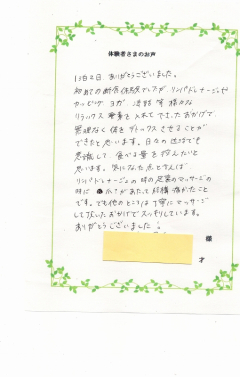 体験者さまのお声
1泊2日 ありがとうございました。
初めての断食体験でしたが、リンパドレナージュや
カッピング ヨガ、法話 等 様々な
リラックス 要素を 入れて下さったおかげで、
無理なく 体を デトックス させることが
できたと思います。日々の 生活でも
意識して 食べる量を 控えたいと
思います。気になった点と言えば
リンパドレナージュの 時の 足裏のマッサージの
時に 爪が あたって 結構 痛かったこと
です。でも 他のところは 丁寧に マッサージ
して 頂いた おかげで スッキリしています。
ありがとうございました!
様
才